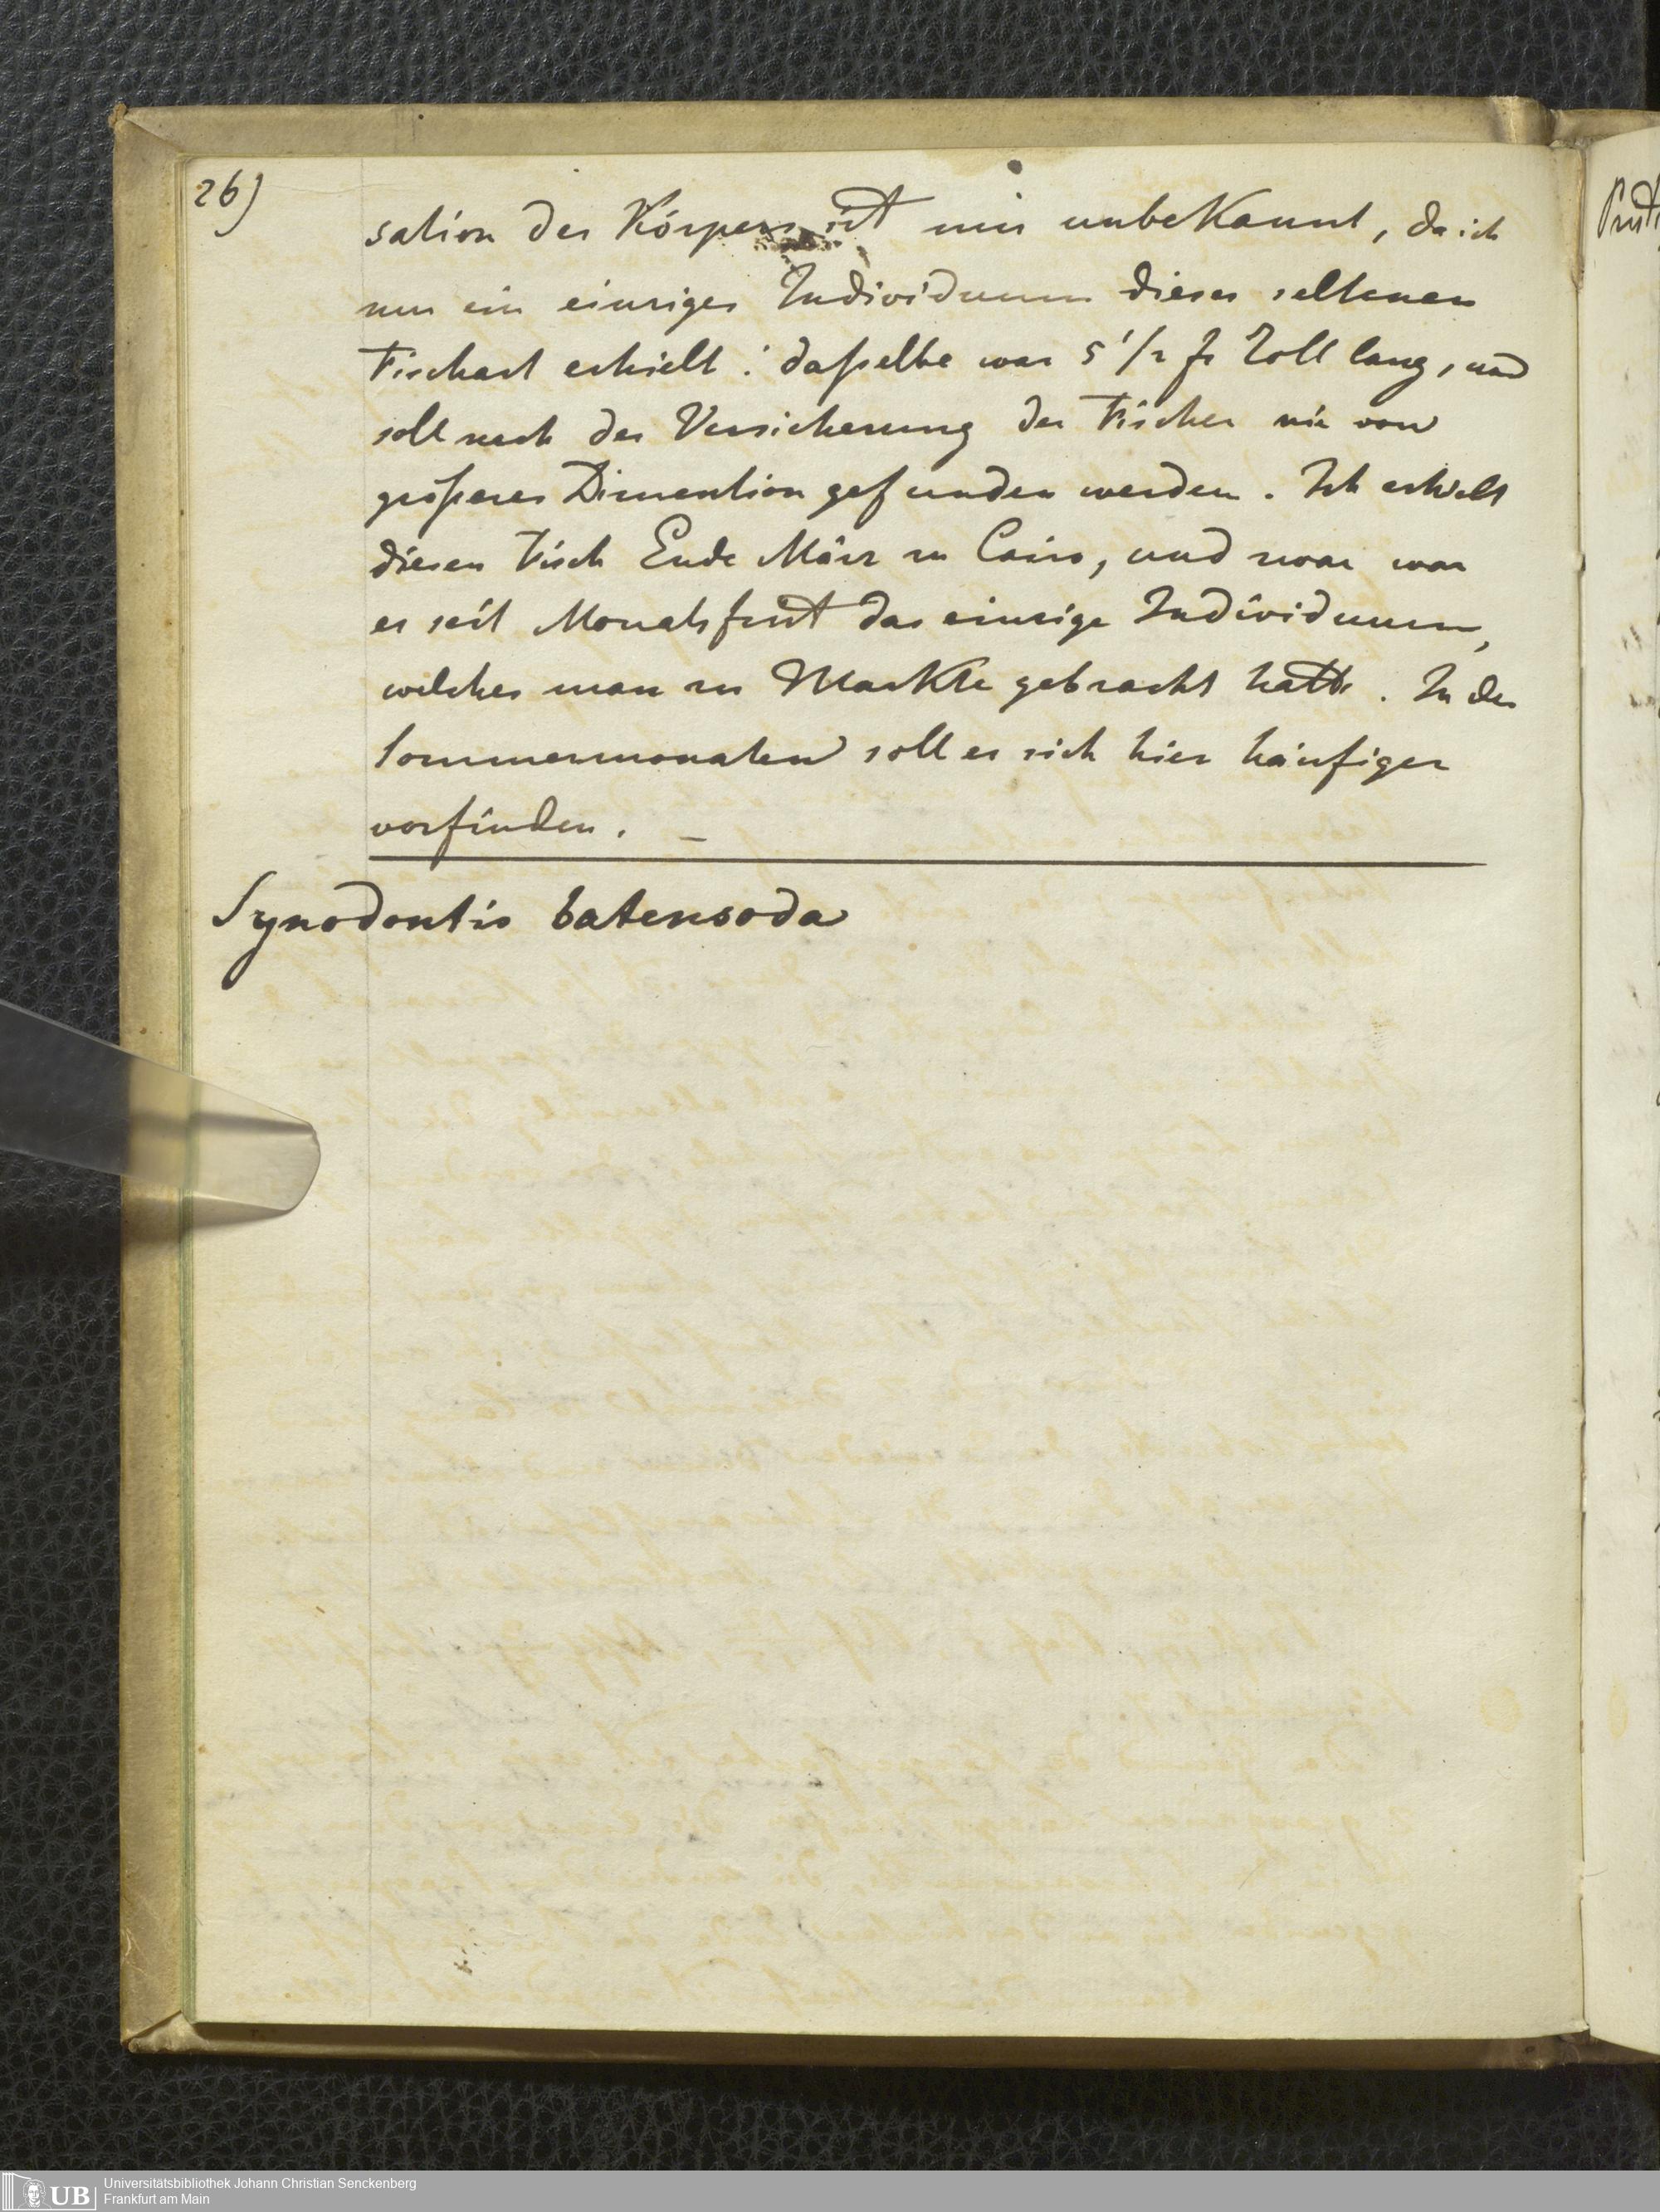 26)
sation des Körpers ist mir unbekannt, da ich
nur ein einziges Individuum dieser seltenen
Fischart erhielt: daßelbe war 5 1/2 fr Zoll lang, und
soll nach der Versicherung der Fischer nie von
größerer Dimention gefunden werden. Ich erhielt
diesen Fisch Ende März zu Cairo, und zwar war
es seit Monatsfrist das einzige Individuum,
welches man zu Markte gebracht hatte. In den
Sommermonaten soll er sich hier häufiger
vorfinden. –
Synodontis batensoda
UB
Universitätsbibliothek Johann Christian Senckenberg
Frankfurt am Main